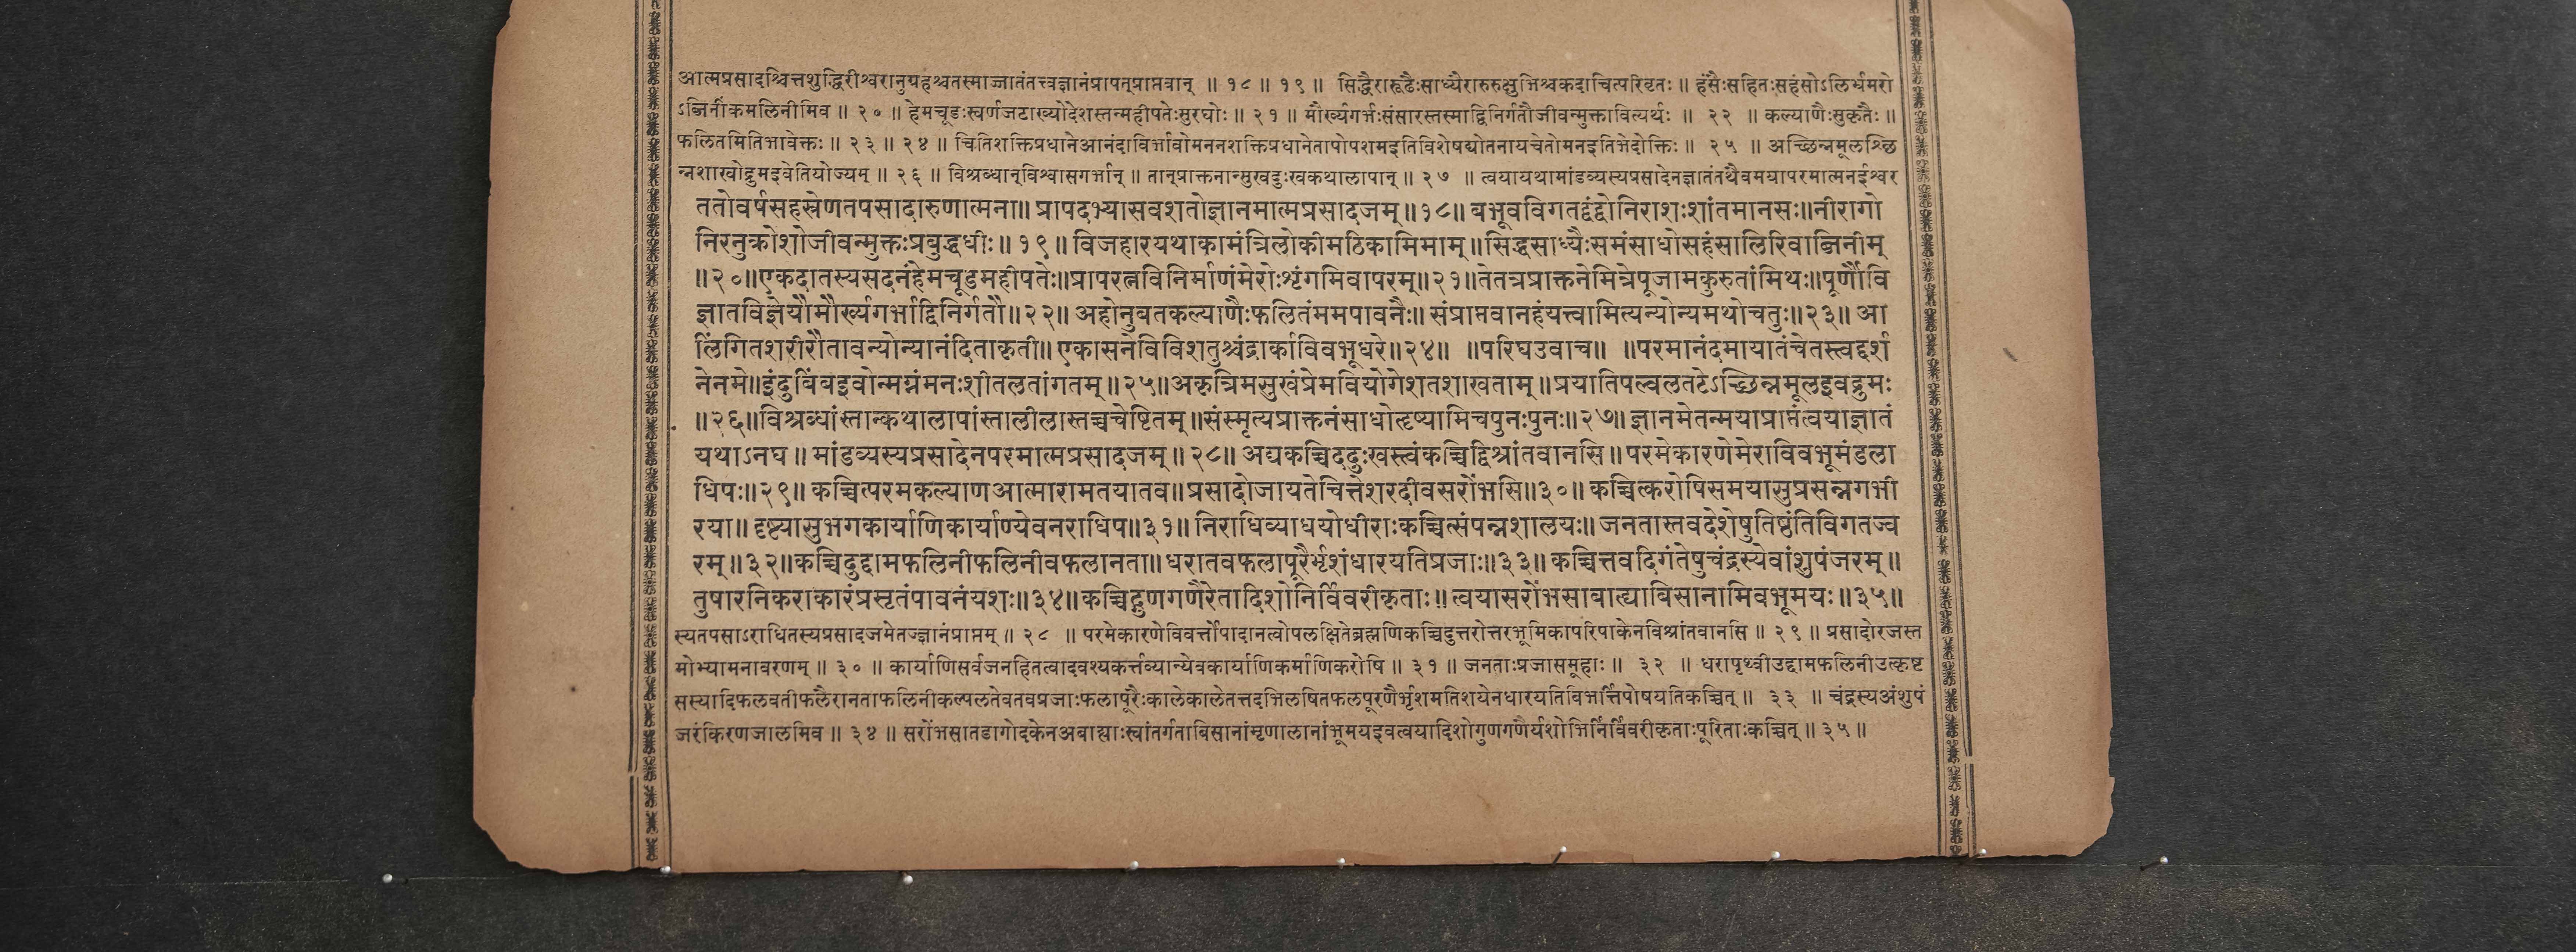 आत्मप्रसादश्चित्तशुद्धिरीश्वरानुग्रहश्चतस्माज्जातंतत्त्वज्ञानंप्रापत्प्राप्तवान् ॥ १८ ॥ १९ ॥ सिद्धैरारूढैःसाध्यैरारुरुक्षुभिश्चकदाचित्परिवृतः ॥ हंसैःसहितःसहंसोऽलिर्भ्रमरो
ऽब्जिनींकमलिनीमिव ॥ २० ॥ हेमचूडःस्वर्णजटाख्योदेशस्तन्महीपतेःसुरघोः ॥ २१ ॥ मौर्ख्यगर्भःसंसारस्तस्माद्विनिर्गतौजीवन्मुक्तावित्यर्थः ॥ २२ ॥ कल्याणैःसुकृतैः ॥
फलितमितिभावेक्तः ॥ २३ ॥ २४ ॥ चितिशक्तिप्रधानेआनंदाविर्भावोमननशक्तिप्रधानेतापोपशमइतिविशेषद्योतनायचेतोमनइतिभेदोक्तिः ॥ २५ ॥ अच्छिन्नमूलश्छि
न्नशाखोद्रुमइवेतियोज्यम् ॥ २६ ॥ विश्रब्धान्विश्वासगर्भान् ॥ तान्प्राक्तनान्सुखदुःखकथालापान् ॥ २७ ॥ त्वयायथामांडव्यस्यप्रसादेनज्ञातंतथैवमयापरमात्मनईश्वर
ततोवर्षसहस्रेणतपसादारुणात्मना॥ प्रापदभ्यासवशतोज्ञानमात्मप्रसादजम्॥१८॥ बभूवविगतद्वंद्वोनिराशःशांतमानसः॥नीरागो
निरनुक्रोशोजीवन्मुक्तःप्रबुद्धधीः॥ १९॥ विजहारयथाकामंत्रिलोकीमठिकामिमाम्॥सिद्धसाध्यैःसमंसाधोसहंसालिरिवाब्जिनीम्
॥२०॥एकदातस्यसदनंहेमचूडमहीपतेः॥प्रापरत्नविनिर्माणंमेरोःशृंगमिवापरम्॥२१॥तेतत्रप्राक्तनेमित्रेपूजामकुरुतांमिथः॥पूर्णौवि
ज्ञातविज्ञेयौमौर्ख्यगर्भाद्विनिर्गतौ॥२२॥ अहोनुबतकल्याणैःफलितंममपावनैः॥ संप्राप्तवानहंयत्त्वामित्यन्योन्यमथोचतुः॥२३॥ आ
लिंगितशरीरौतावन्योन्यानंदिताकृती॥ एकासनेविविशतुश्चंद्रार्काविवभूधरे॥२४॥ ॥परिघउवाच॥ ॥परमानंदमायातंचेतस्त्वद्दर्श
नेनमे॥इंदुबिंबइवोन्मग्नंमनःशीतलतांगतम्॥२५॥अकृत्रिमसुखंप्रेमवियोगेशतशाखताम्॥प्रयातिपल्वलतटेऽच्छिन्नमूलइवद्रुमः
॥२६॥विश्रब्धांस्तान्कथालापांस्तालीलास्तच्चचेष्टितम्॥संस्मृत्यप्राक्तनंसाधोत्दृष्यामिचपुनःपुनः॥२७॥ ज्ञानमेतन्मयाप्राप्तंत्वयाज्ञातं
यथाऽनघ॥ मांडव्यस्यप्रसादेनपरमात्मप्रसादजम्॥२८॥ अद्यकच्चिददुःखस्त्वंकच्चिद्विश्रांतवानसि॥परमेकारणेमेराविवभूमंडला
धिपः॥२९॥ कच्चित्परमकल्याणआत्मारामतयातव॥प्रसादोजायतेचित्तेशरदीवसरोंभसि॥३०॥ कच्चित्करोषिसमयासुप्रसन्नगभी
रया॥ दृष्ट्यासुभगकार्याणिकार्याण्येवनराधिप॥३१॥ निराधिव्याधयोधीराःकच्चित्संपन्नशालयः॥ जनतास्तवदेशेषुतिष्ठंतिविगतज्व
रम्॥३२॥कच्चिदुद्दामफलिनीफलिनीवफलानता॥धरातवफलापूरैर्भृशंधारयतिप्रजाः॥३३॥ कच्चित्तवदिगंतेषुचंद्रस्येवांशुपंजरम्॥
तुषारनिकराकारंप्रसृतंपावनंयशः॥३४॥कच्चिद्गुणगणैरेतादिशोनिर्विवरीकृताः॥ त्वयासरोंभसाबाल्याबिसानामिवभूमयः॥३५॥
स्यतपसाऽराधितस्यप्रसादजमेतज्ज्ञानंप्राप्तम् ॥ २८ ॥ परमेकारणेविवर्त्तोपादानत्वोपलक्षितेब्रह्मणिकच्चिदुत्तरोत्तरभूमिकापरिपाकेनविश्रांतवानसि ॥ २९ ॥ प्रसादोरजस्त
मोभ्यामनावरणम् ॥ ३० ॥ कार्याणिसर्वजनहितत्वादवश्यकर्त्तव्यान्येवकार्याणिकर्माणिकरोषि ॥ ३१ ॥ जनताःप्रजासमूहाः ॥ ३२ ॥ धरापृथ्वीउद्दामफलिनीउत्कृष्ट
सस्यादिफलवतीफलैरानताफलिनीकल्पलतेवतवप्रजाःफलापूरैःकालेकालेतत्तदभिलषितफलपूरणैर्भृशमतिशयेनधारयतिबिभर्त्तिपोषयतिकच्चित् ॥ ३३ ॥ चंद्रस्यअंशुपं
जरंकिरणजालमिव ॥ ३४ ॥ सरोंभसातडागोदकेनअबाह्याःस्वांतर्गताबिसानांमृणालानांभूमयइवत्वयादिशोगुणगणैर्यशोभिर्निर्विवरीकृताःपूरिताःकच्चित् ॥ ३५ ॥